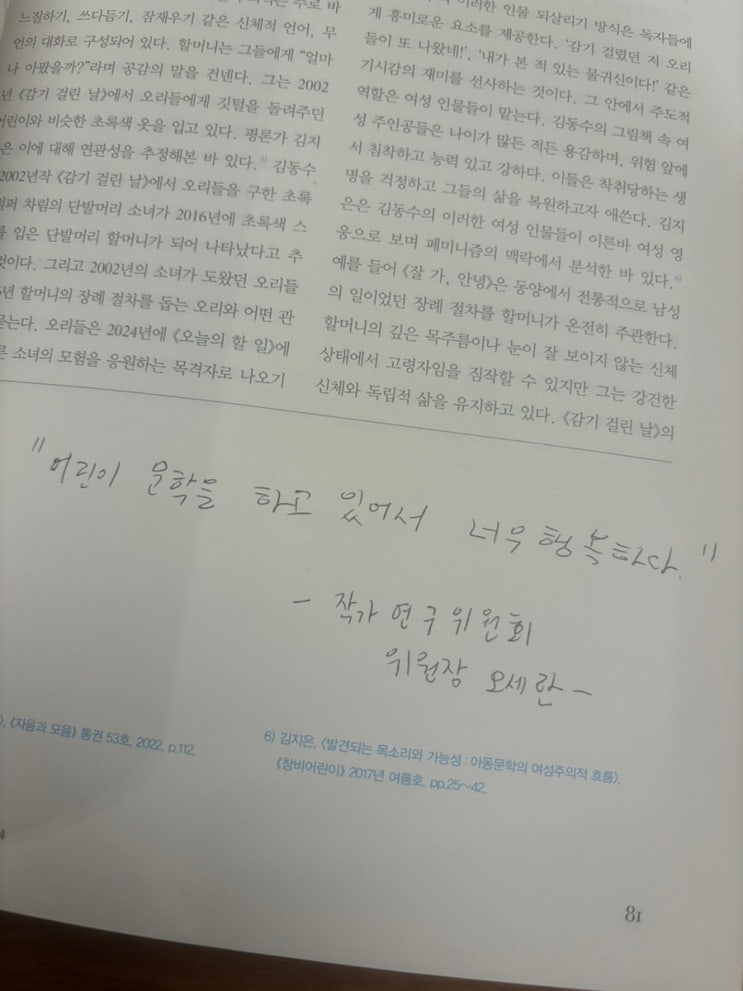 느질하기, 쓰다듬기, 잠재우기 같은 신체적 언어, 무
언의 대화로 구성되어 있다. 할머니는 그들에게 “얼마
나 아팠을까?”라며 공감의 말을 건넨다. 그는 2002
년 《감기 걸린 날》에서 오리들에게 깃털을 돌려주던
어린이와 비슷한 초록색 옷을 입고 있다. 평론가 김지
은 이에 대해 연관성을 추정해본 바 있다.⁵⁾ 김동수
2002년작 《감기 걸린 날》에서 오리들을 구한 초록
차림의 단발머리 소녀가 2016년에 초록색 스
를 입은 단발머리 할머니가 되어 나타났다고 추
것이다. 그리고 2002년의 소녀가 도왔던 오리들
년 할머니의 장례 절차를 돕는 오리와 어떤 관
묻는다. 오리들은 2024년에 《오늘의 할 일》에
른 소녀의 모험을 응원하는 목격자로 나오기
이러한 인물 되살리기 방식은 독자들에
게 흥미로운 요소를 제공한다. ‘감기 걸렸던 저 오리
들이 또 나왔네!’, ‘내가 본 적 있는 물귀신이다!’ 같은
기시감의 재미를 선사하는 것이다. 그 안에서 주도적
역할은 여성 인물들이 맡는다. 김동수의 그림책 속 여
성 주인공들은 나이가 많든 적든 용감하며, 위험 앞에
서 침착하고 능력 있고 강하다. 이들은 착취당하는 생
명을 걱정하고 그들의 삶을 복원하고자 애쓴다. 김지
은은 김동수의 이러한 여성 인물들이 이른바 여성 영
웅으로 보며 페미니즘의 맥락에서 분석한 바 있다.⁶⁾
예를 들어 《잘 가, 안녕》은 동양에서 전통적으로 남성
의 일이었던 장례 절차를 할머니가 온전히 주관한다.
할머니의 깊은 목주름이나 눈이 잘 보이지 않는 신체
상태에서 고령자임을 짐작할 수 있지만 그는 강건한
신체와 독립적 삶을 유지하고 있다. 《감기 걸린 날》의
"어린이 문학을 하고 있어서 너무 행복하다."
- 작가 연구 위원회
위원장 오세란 -
》, 《자음과 모음》 통권 53호, 2022, p.112.
6) 김지은, 〈발견되는 목소리와 가능성 : 아동문학의 여성주의적 흐름〉,
《창비어린이》 2017년 여름호, pp.25~42.
81